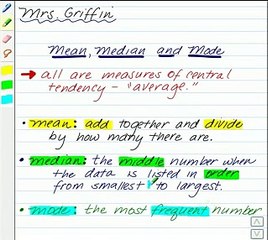 Mrs. Griffin
Mean, Median and Mode
→ all are measures of central
tendency - "average."
• mean: add together and divide
by how many there are.
• median: the middle number when
the data is listed in order
from smallest to largest.
• mode: the most frequent number